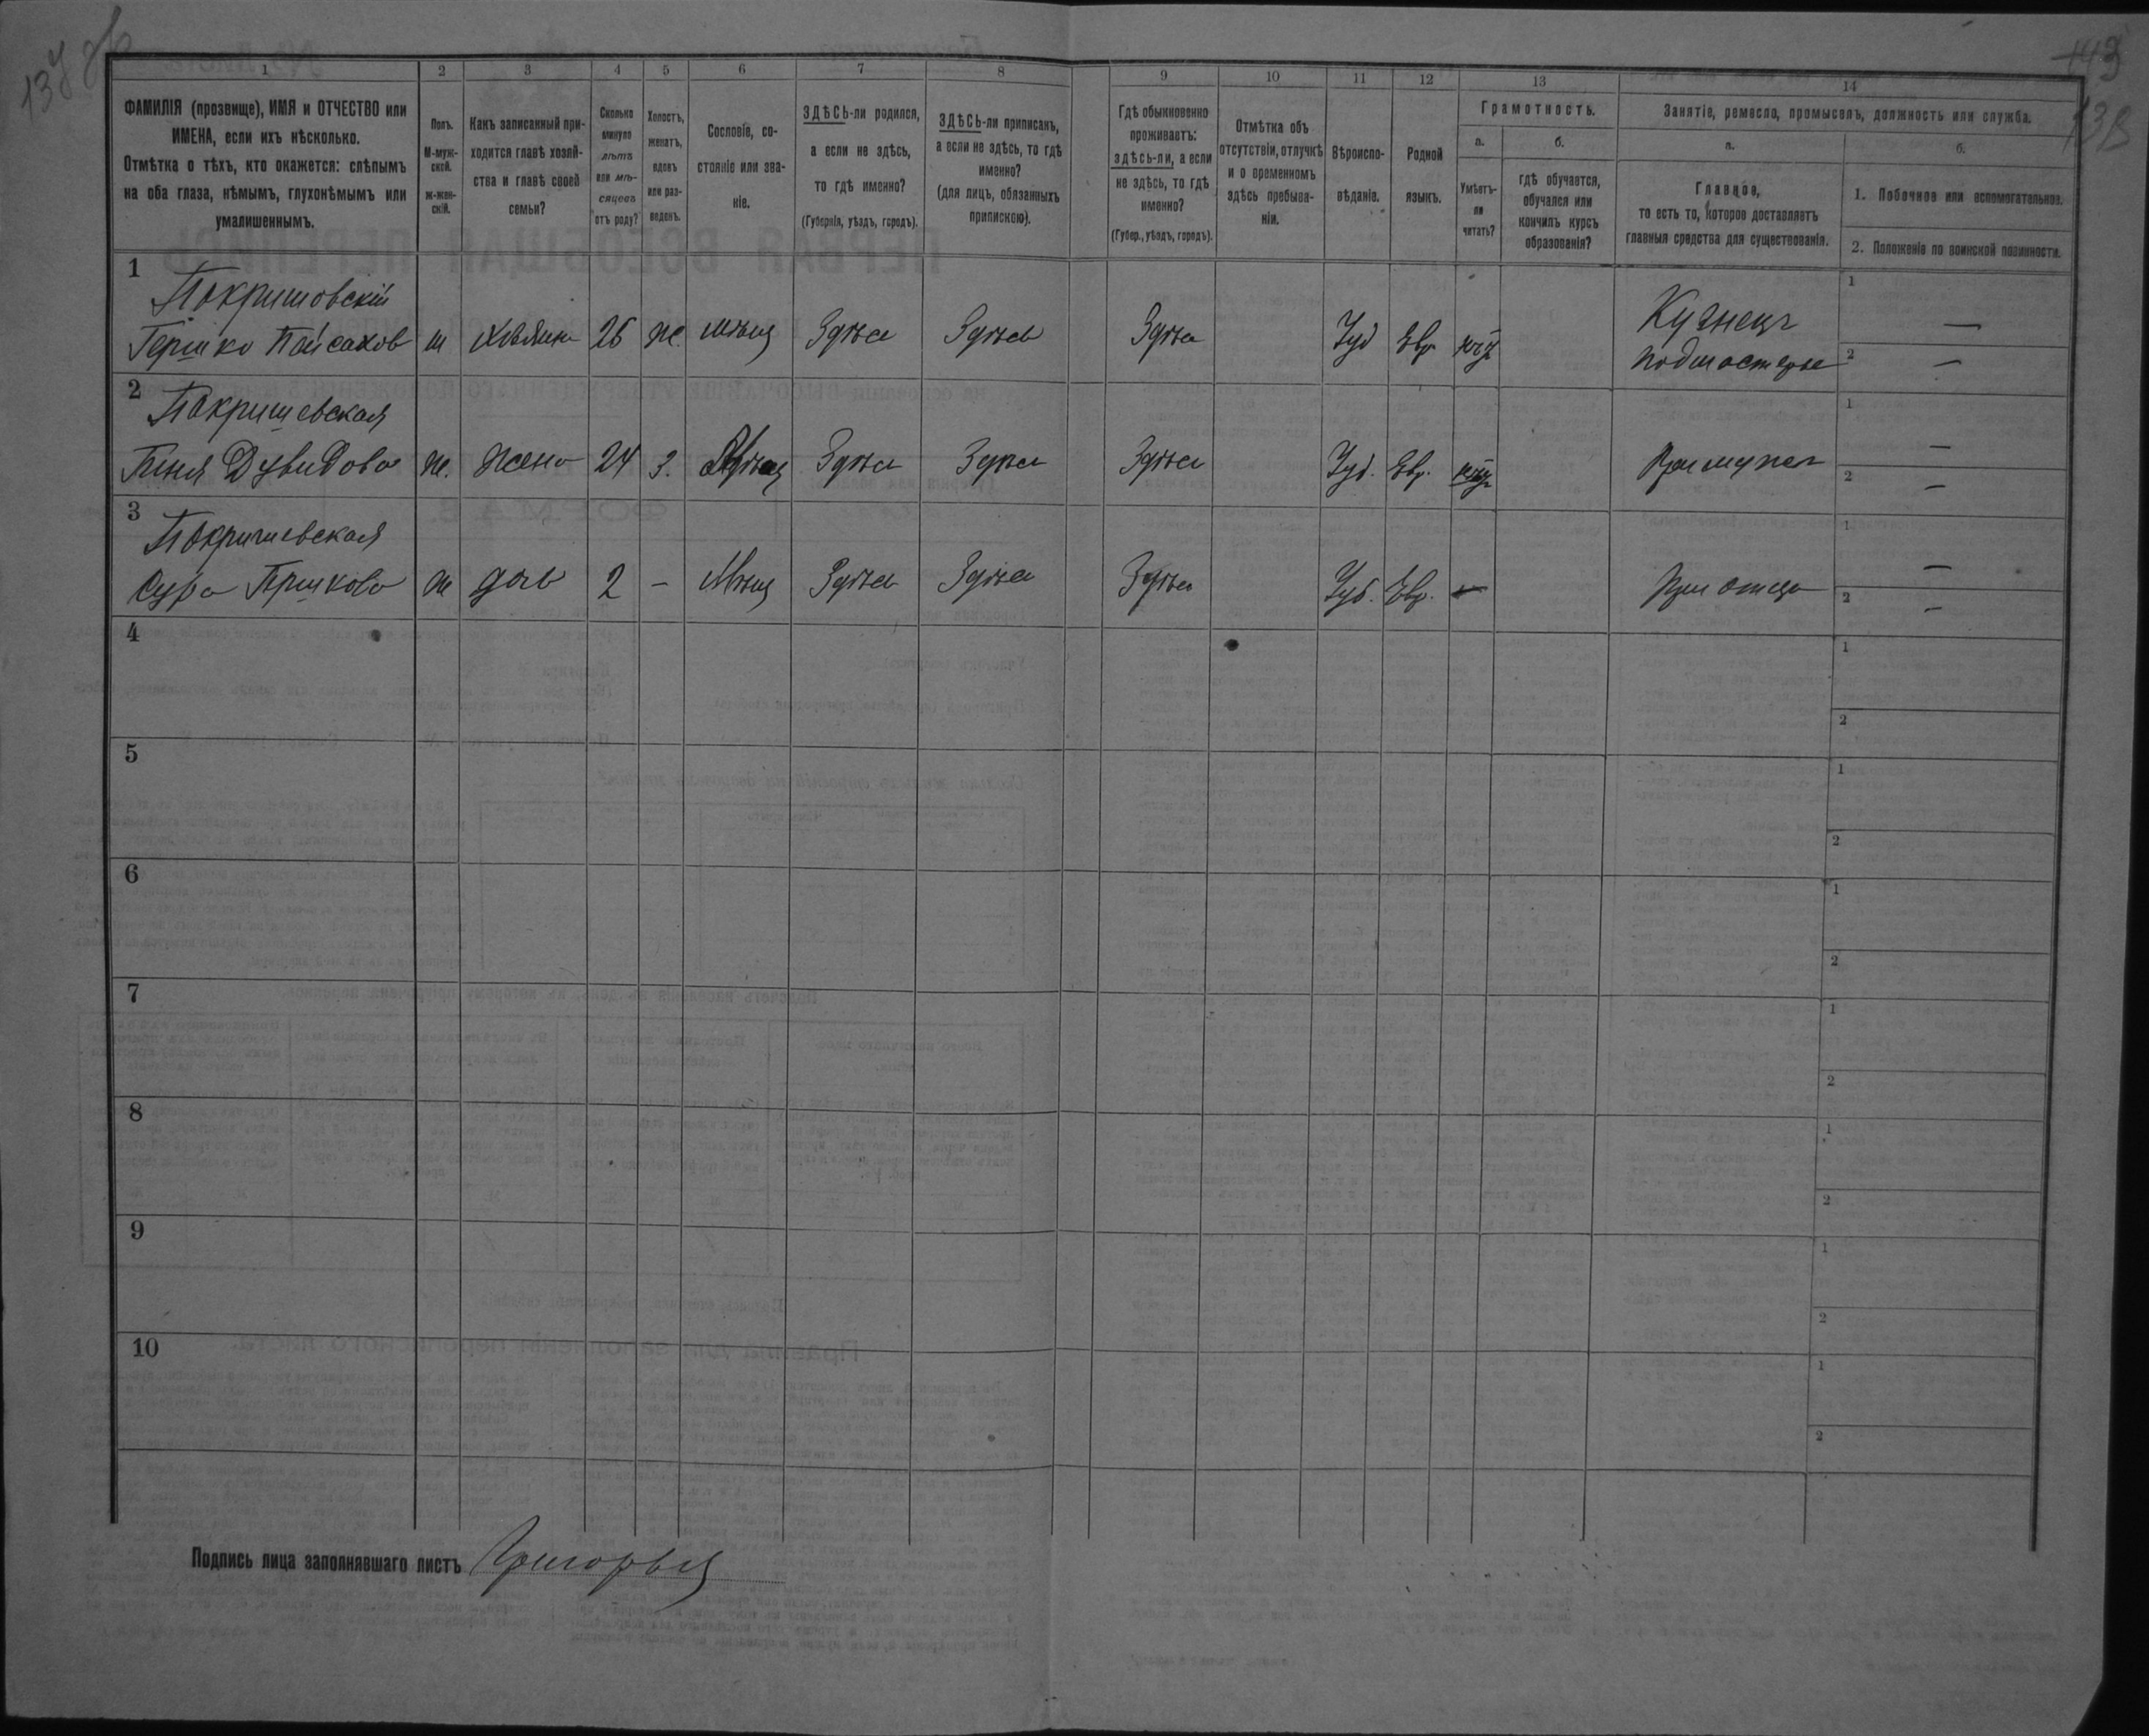 137 об
143
138
1
2
3
4
5
6
7
8
9
10
11
12
13
14
ФАМИЛІЯ (прозвище), ИМЯ и ОТЧЕСТВО или
ИМЕНА, если ихъ нѣсколько.
Отмѣтка о тѣхъ, кто окажется: слѣпымъ
на оба глаза, нѣмымъ, глухонѣмымъ или
умалишеннымъ.
Полъ.
М-муж-
ской.
ж-жен-
скій.
Какъ записанный при-
ходится главѣ хозяй-
ства и главѣ своей
семьи?
Сколько
минуло
лѣтъ
или мѣ-
сяцевъ
отъ роду?
Холостъ,
женатъ,
вдовъ
или раз-
веденъ.
Сословіе, со-
стояніе или зва-
ніе.
ЗДѢСЬ-ли родился,
а если не здѣсь,
то гдѣ именно?
(Губернія, уѣздъ, городъ).
ЗДѢСЬ-ли приписанъ,
а если не здѣсь, то гдѣ
именно?
(для лицъ, обязанныхъ
припискою).
Гдѣ обыкновенно
проживаетъ:
здѣсь-ли, а если
не здѣсь, то гдѣ
именно?
(Губер., уѣздъ, городъ).
Отмѣтка объ
отсутствіи, отлучкѣ
и о временномъ
здѣсь пребыва-
ніи.
Вѣроиспо-
вѣданіе.
Родной
языкъ.
Грамотность.
а.
Умѣетъ-
ли
читать?
б.
гдѣ обучается,
обучался или
кончилъ курсъ
образованія?
Занятіе, ремесло, промыселъ, должность или служба.
а.
Главное,
то есть то, которое доставляетъ
главныя средства для существованія.
б.
1. Побочное или вспомогательное.
2. Положеніе по воинской повинности.
1
Покришовскій
Гершко Пайсахов м хозяинъ 26 ж. мѣщ Здѣсь Здѣсь Здѣсь Іуд Евр Кузнецъ
подмастерье
1 —
2 —
2
Покришевская
Дувидова ж. жена 24 з. Здѣсь Здѣсь Здѣсь Іуд. Евр. при мужѣ
1 —
2 —
3
Покришевская
Сура Гершкова ж дочь 2 – Мѣщ Здѣсь Здѣсь Здѣсь Іуд. Евр. — при отцѣ
1 —
2 —
4
1
2
5
1
2
6
1
2
7
1
2
8
1
2
9
1
2
10
1
2
Подпись лица заполнявшаго листъ